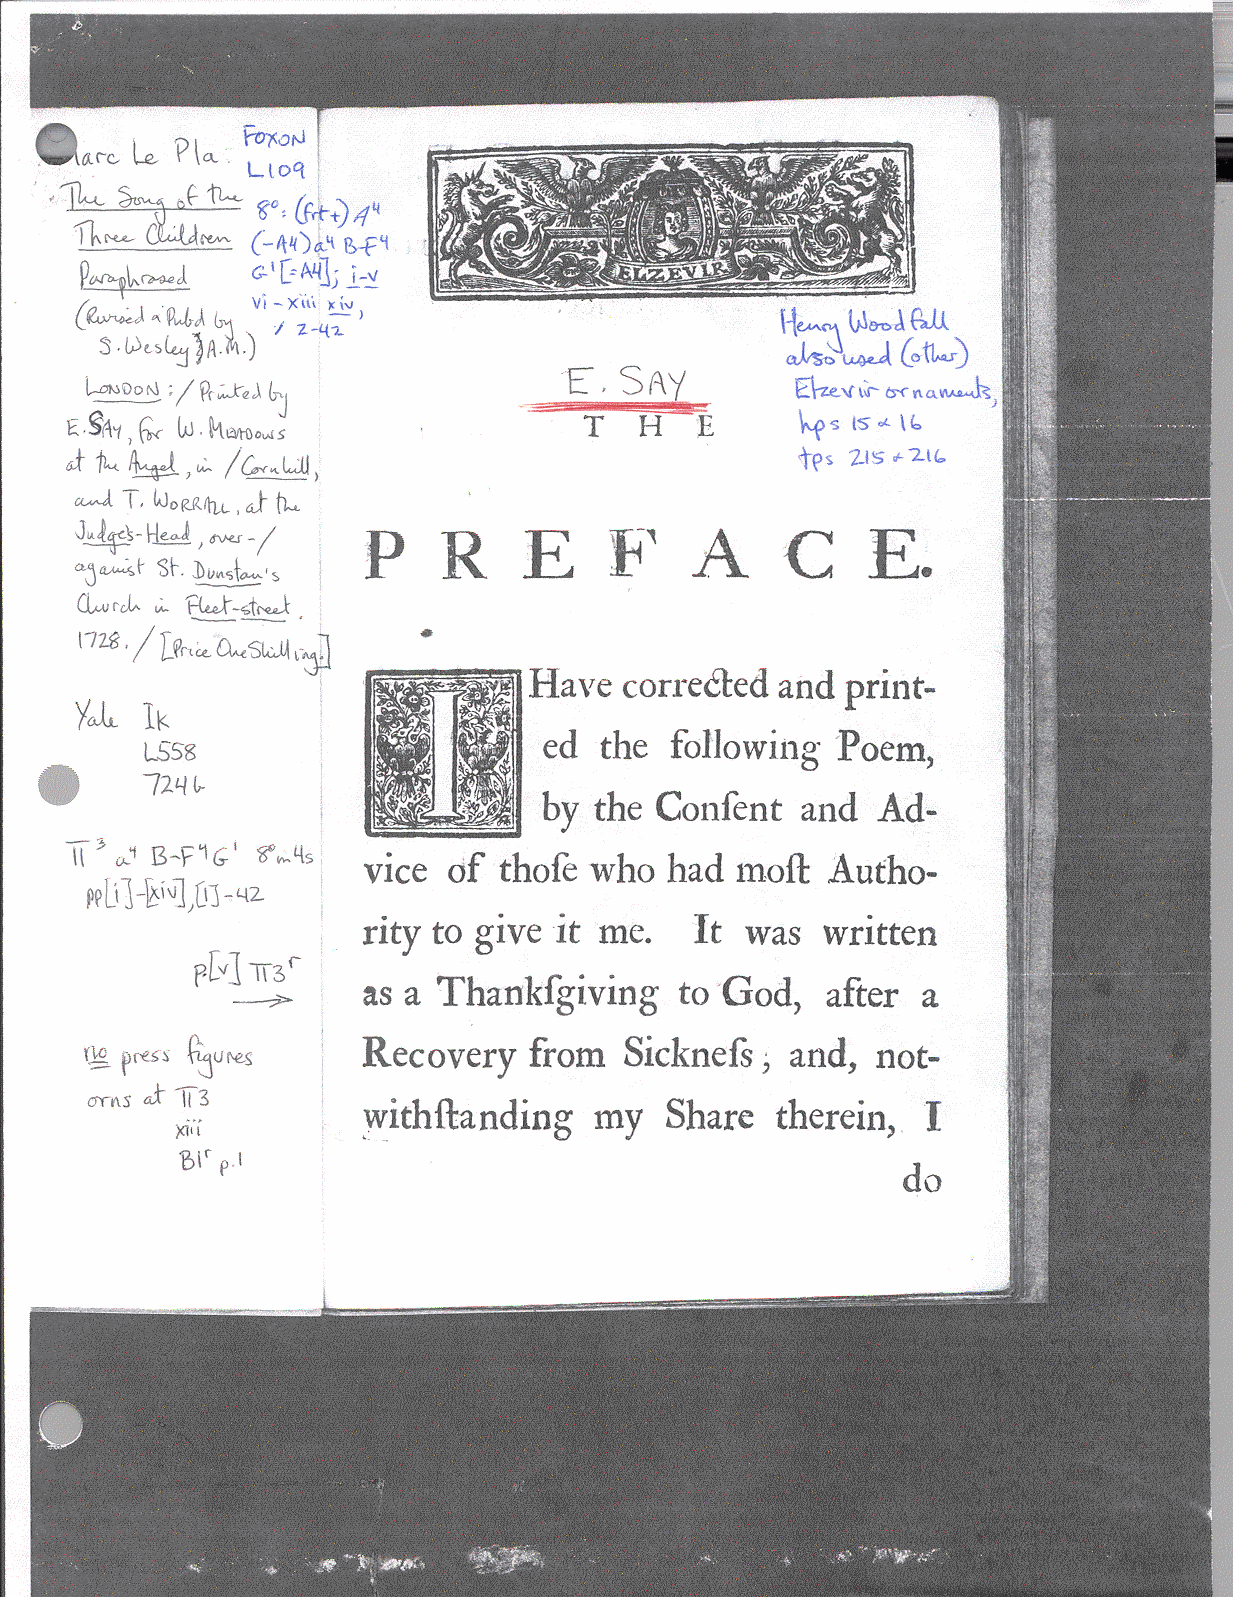 Marc Le Pla.
The Song of the
Three Children
Paraphrased
(Revised & Pub'd by
S. Wesley, A.M.)
LONDON: / Printed by
E. SAY, for W. MEADOWS
at the Angel, in / Cornhill,
and T. WORRALL, at the
Judge's-Head, over- /
against St. Dunstan's
Church in Fleet-street.
1728. / [Price One Shilling.]
FOXON
L109
8°: (frt+) A4
(-A4) a4 B-F4
G1 [=A4]; i-v
vi-xiii xiv,
1 2-42
Yale Ik
L558
724b
π3 a4 B-F4 G1 8° in 4s
pp [i]-[xiv], [1]-42
p. [v] π3r
→
no press figures
orns at π3
xiii
B1r p. 1
ELZEVIR
Henry Woodfall
also used (other)
Elzevir ornaments,
hps 15 & 16
tps 215 & 216
E. SAY
THE
PREFACE.
I Have corrected and print-
ed the following Poem,
by the Conſent and Ad-
vice of thoſe who had moſt Autho-
rity to give it me. It was written
as a Thankſgiving to God, after a
Recovery from Sickneſs; and, not-
withſtanding my Share therein, I
do